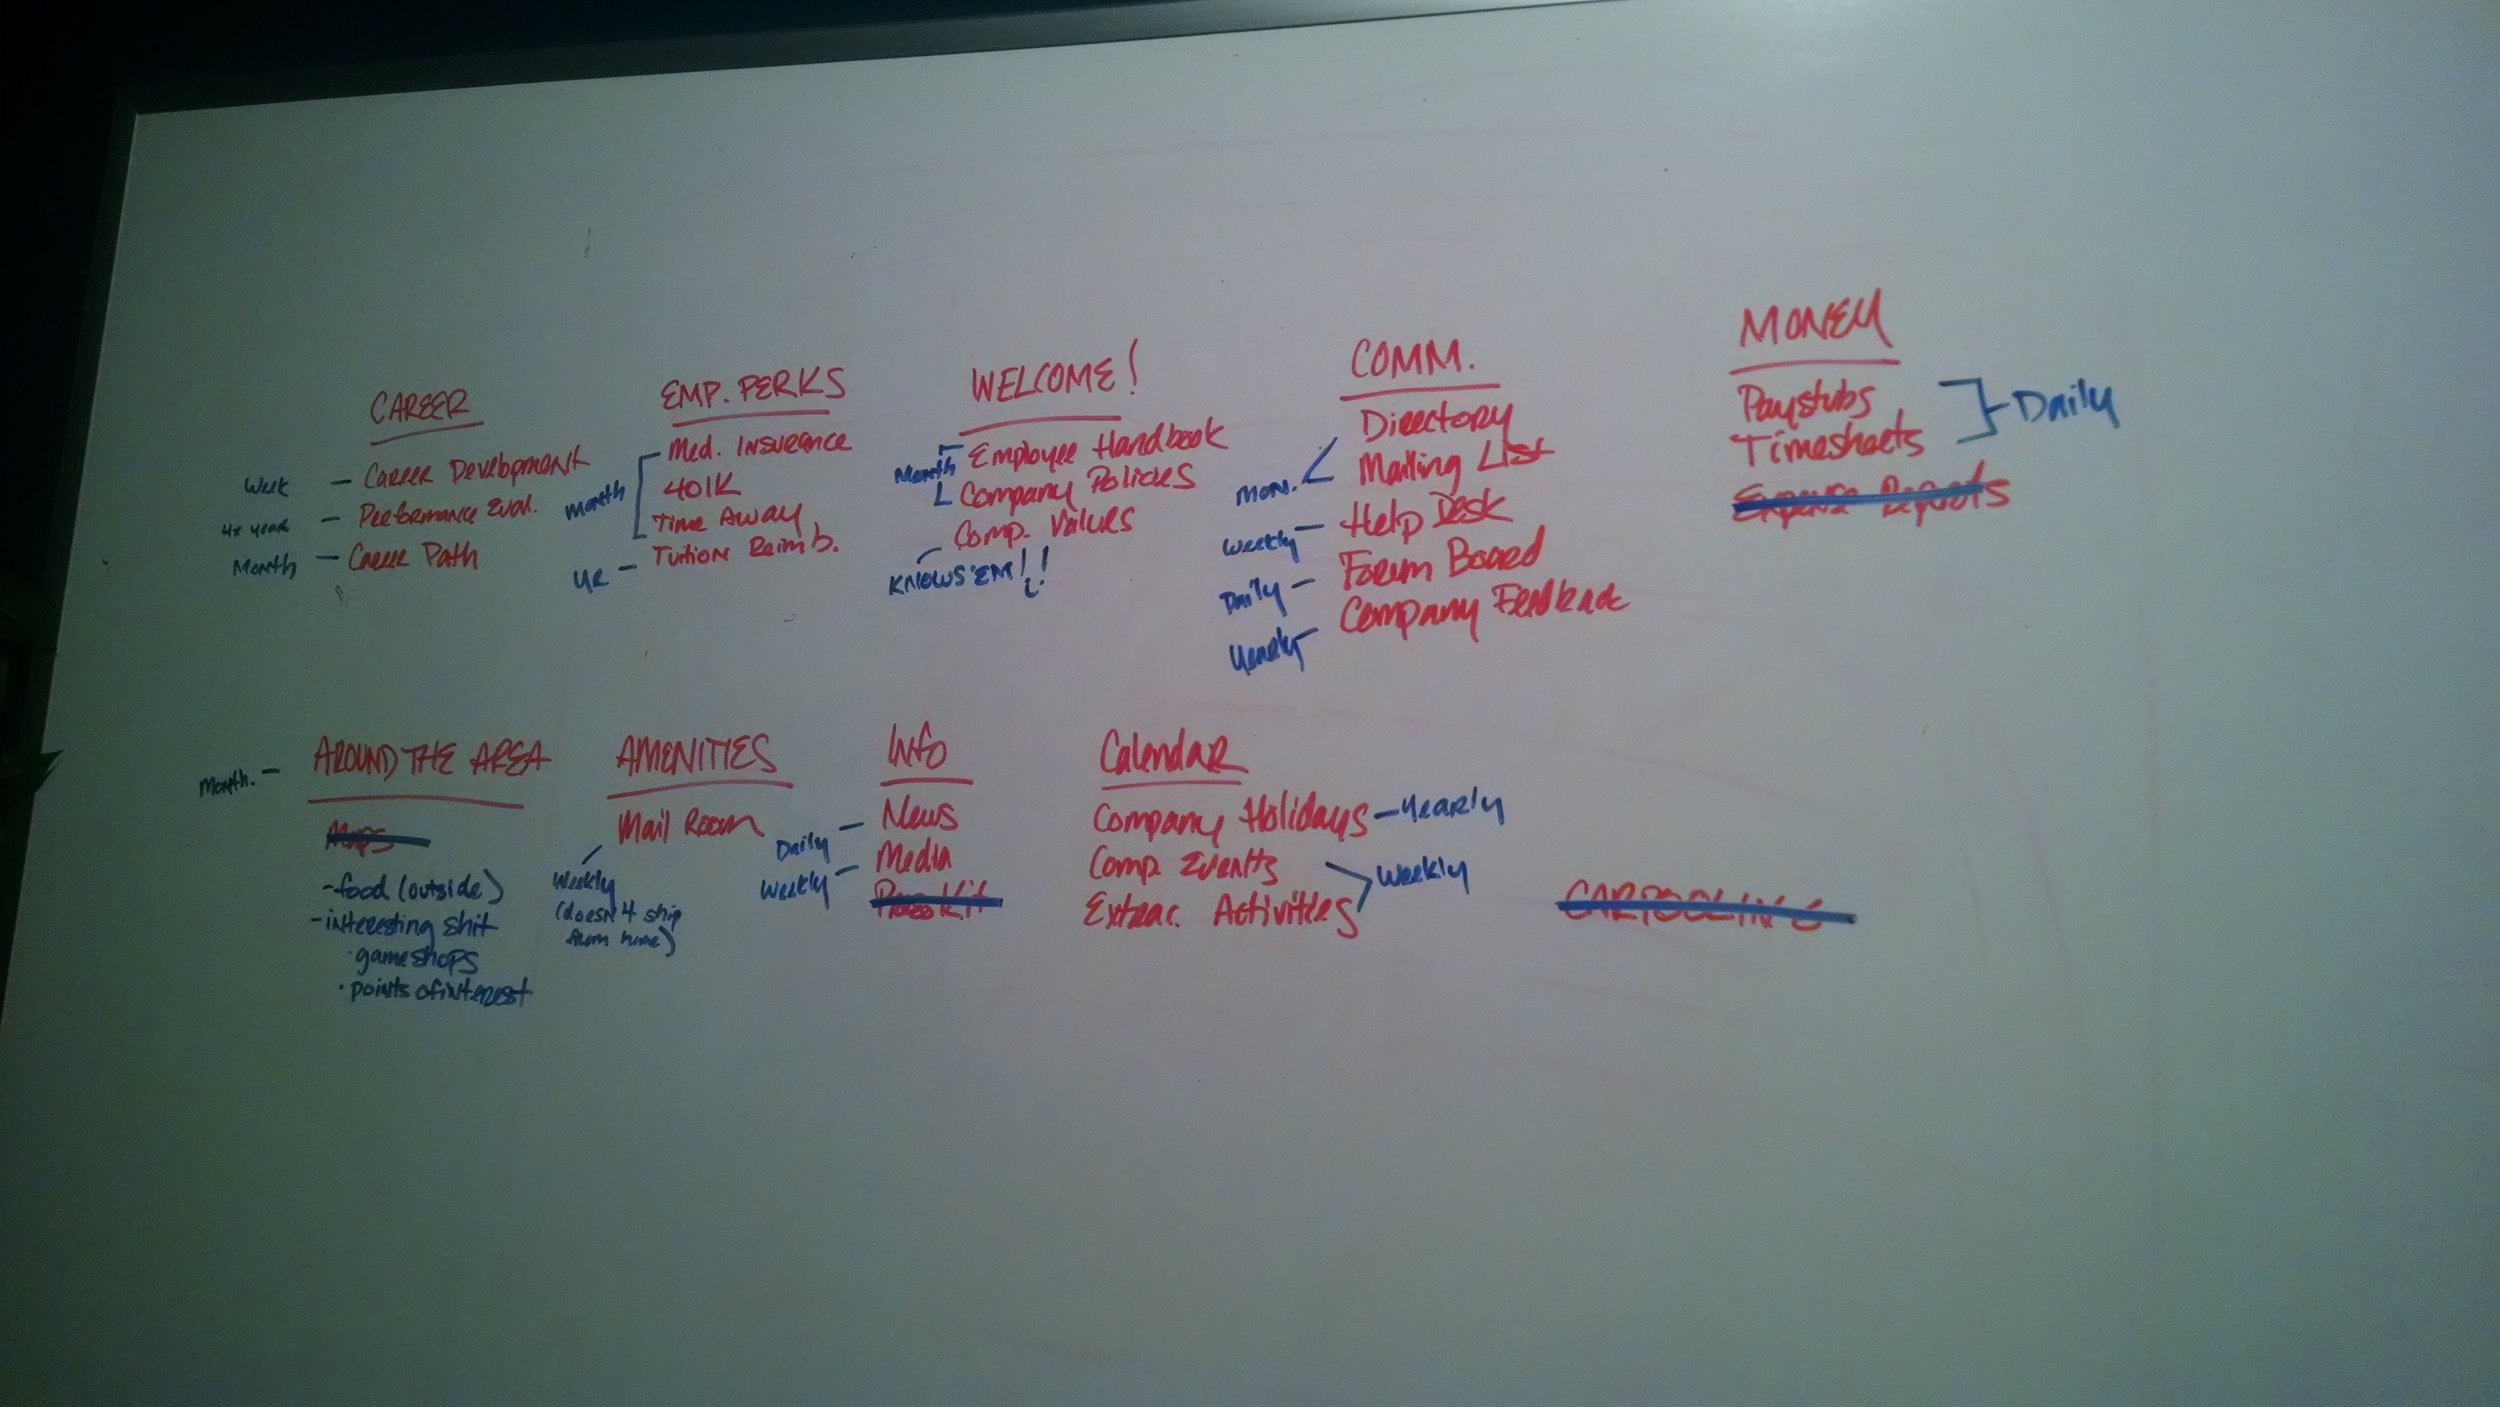 CAREER
Week – Career Development
4x year – Performance Eval.
Month – Career Path
EMP. PERKS
Med. Insurance
401K
Month
Time Away
YR – Tuition Reimb.
WELCOME!
Employee Handbook
Month
Company Policies
Comp. Values
KNOWS 'EM!!
COMM.
Directory
Mailing List
Mon.
Weekly – Help Desk
Daily – Forum Board
Yearly – Company Feedback
MONEY
Paystubs
Timesheets
Daily
Expense Reports
Month. – AROUND THE AREA
Maps
- food (outside)
- interesting shit
· gameshops
· points of interest
AMENITIES
Mail Room
Weekly
(doesn't ship
from home)
Info
Daily – News
Weekly – Media
Press Kit
Calendar
Company Holidays – Yearly
Comp. Events
Weekly
Extrac. Activities
CARPOOLING